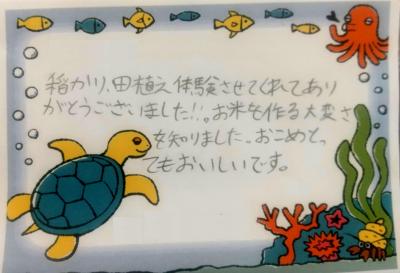 稲かり、田植え体験させてくれてあり
がとうございました!!。お米を作る大変さ
を知りました。おこめとっ
てもおいしいです。